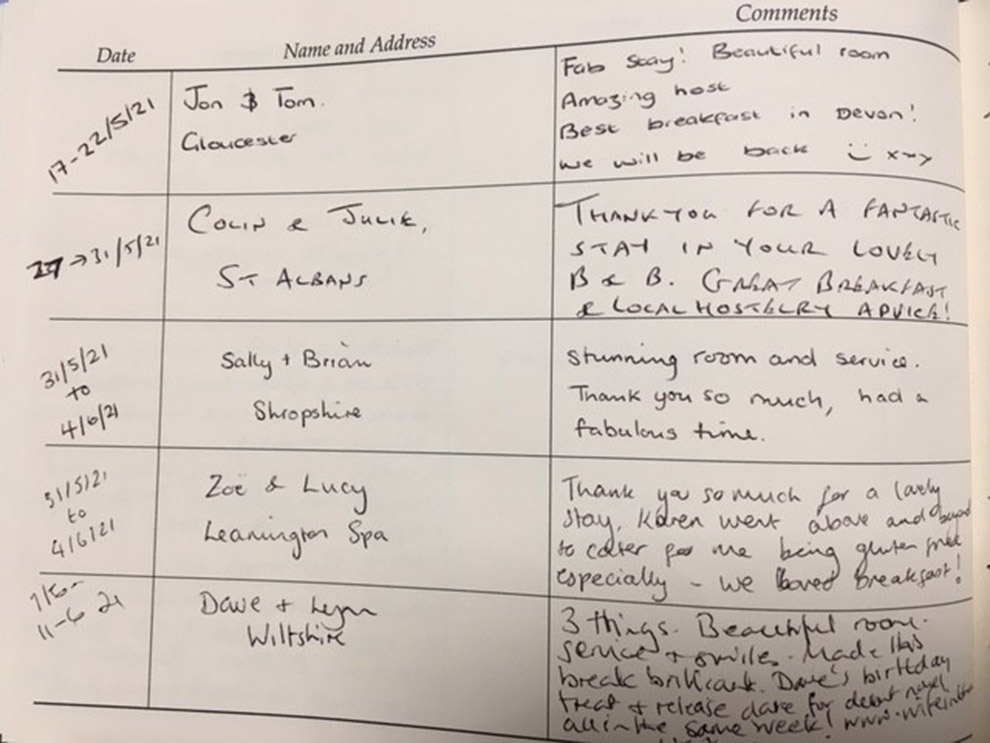 Date Name and Address Comments
17-22/5/21
Jon & Tom.
Gloucester
Fab stay! Beautiful room
Amazing host
Best breakfast in Devon!
we will be back
27 → 31/5/21
COLIN & JULIE,
ST ALBANS
THANKYOU FOR A FANTASTIC
STAY IN YOUR LOVELY
B & B. GREAT BREAKFAST
& LOCAL HOSTELRY ADVICE!
31/5/21
to
4/6/21
Sally + Brian
Shropshire
Stunning room and service.
Thank you so much, had a
fabulous time.
31/5/21
to
4/6/21
Zoë & Lucy
Leamington Spa
Thank you so much for a lovely
stay, Karen went above and beyond
to cater for me being gluten free
especially - we loved breakfast!
11-6 21
Dave + Lynn
Wiltshire
3 things. Beautiful room.
service + smiles. Made this
break brilliant. Dave's birthday
treat + release date for debut novel
all in the same week! www.wifein